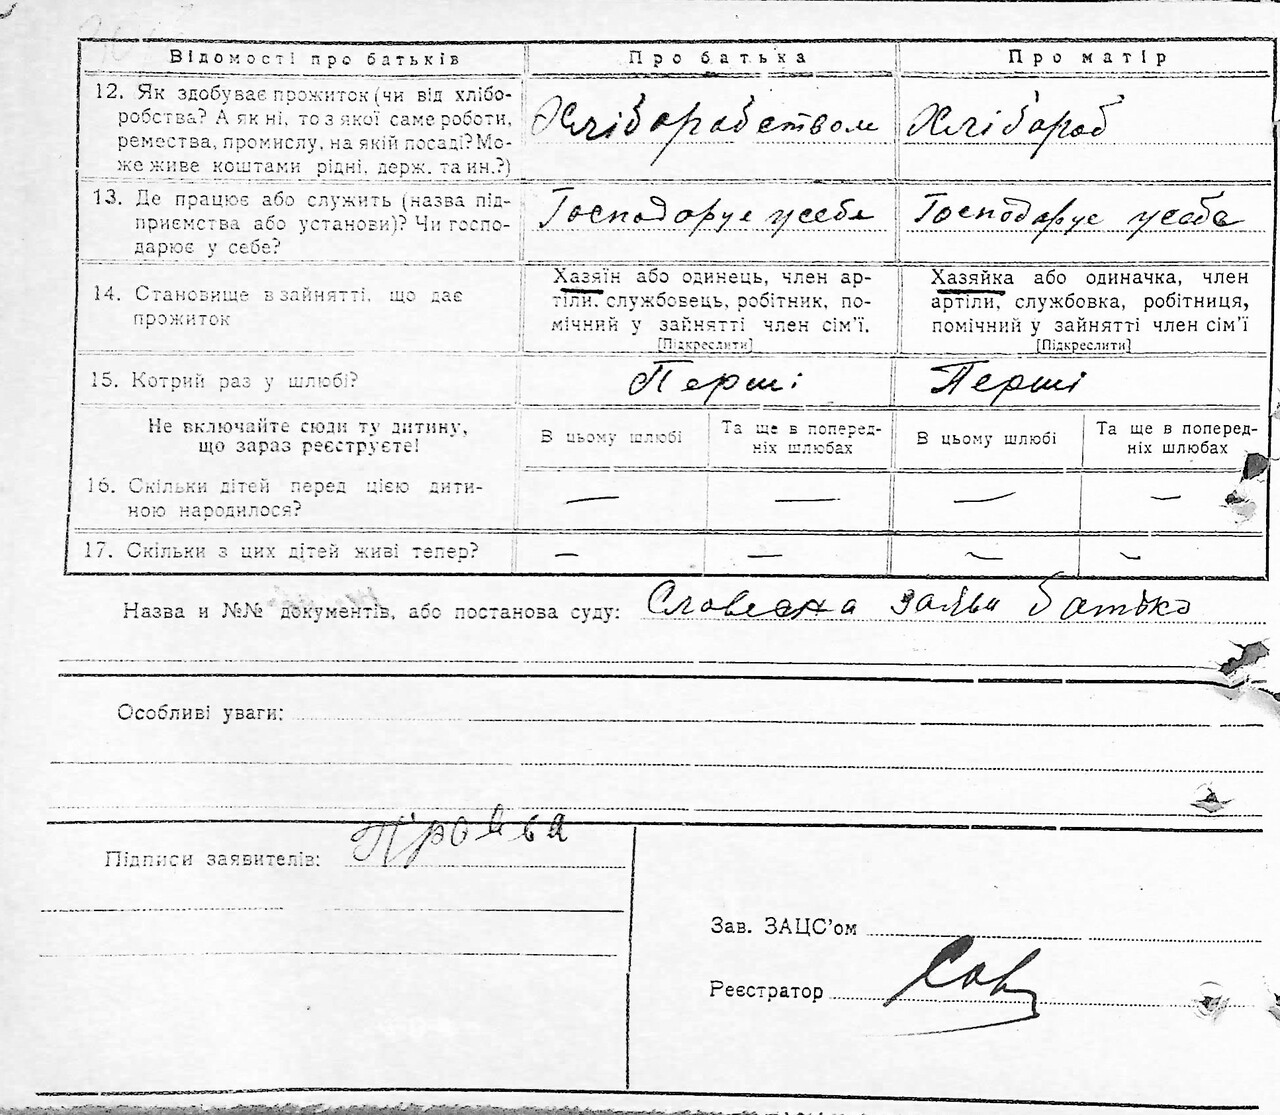 Відомості про батьків Про батька Про матір
12. Як здобуває прожиток (чи від хлібо- робства? А як ні, то з якої саме роботи, ремества, промислу, на якій посаді? Мо- же живе коштами рідні, держ. та ин.?)
Хліборобством Хлібороб
13. Де працює або служить (назва під-
приємства або установи)? Чи госпо-
дарює у себе?
Господарує у себе Господарує у себе
14. Становище в зайнятті, що дає
прожиток
Хазяїн або одинець, член ар-
тіли, службовець, робітник, по-
мічний у зайнятті член сім'ї.
[Підкреслити]
Хазяйка або одиначка, член
артіли, службовка, робітниця,
помічний у зайнятті член сім'ї
[Підкреслити]
15. Котрий раз у шлюбі? Перші Перші
Не включайте сюди ту дитину,
що зараз реєструєте!
В цьому шлюбі
Та ще в поперед-
ніх шлюбах
В цьому шлюбі
Та ще в поперед-
ніх шлюбах
16. Скільки дітей перед цією дити-
ною народилося?
— — — —
17. Скільки з цих дітей живі тепер?
— — — —
Назва и №№ документів, або постанова суду: Словесна заява батько
Особливі уваги:
Підписи заявителів:
Зав. ЗАЦС'ом
Реєстратор